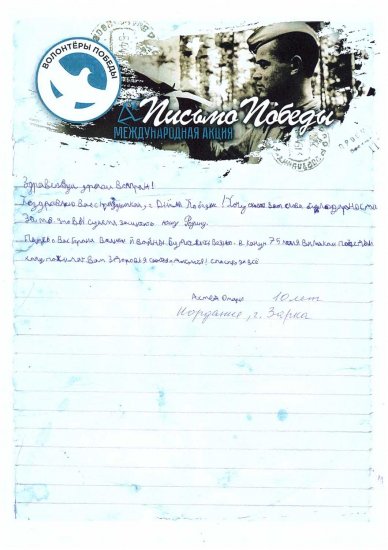 ВОЛОНТЁРЫ ПОБЕДЫ
Письмо Победы
МЕЖДУНАРОДНАЯ АКЦИЯ
Здравствуй, дорогой Ветеран!
Поздравляю Вас с праздником, с Днём Победы! Хочу сказать вам слова благодарности
За то, что вы сумели защищать нашу Родину.
Память о Вас Героях Великой войны будет жить вечно. в канун 75 летия Великой победы
хочу пожелать Вам здоровья спасибо за всё
Ахмед Омар 10 лет
Иордания, г. Зарка